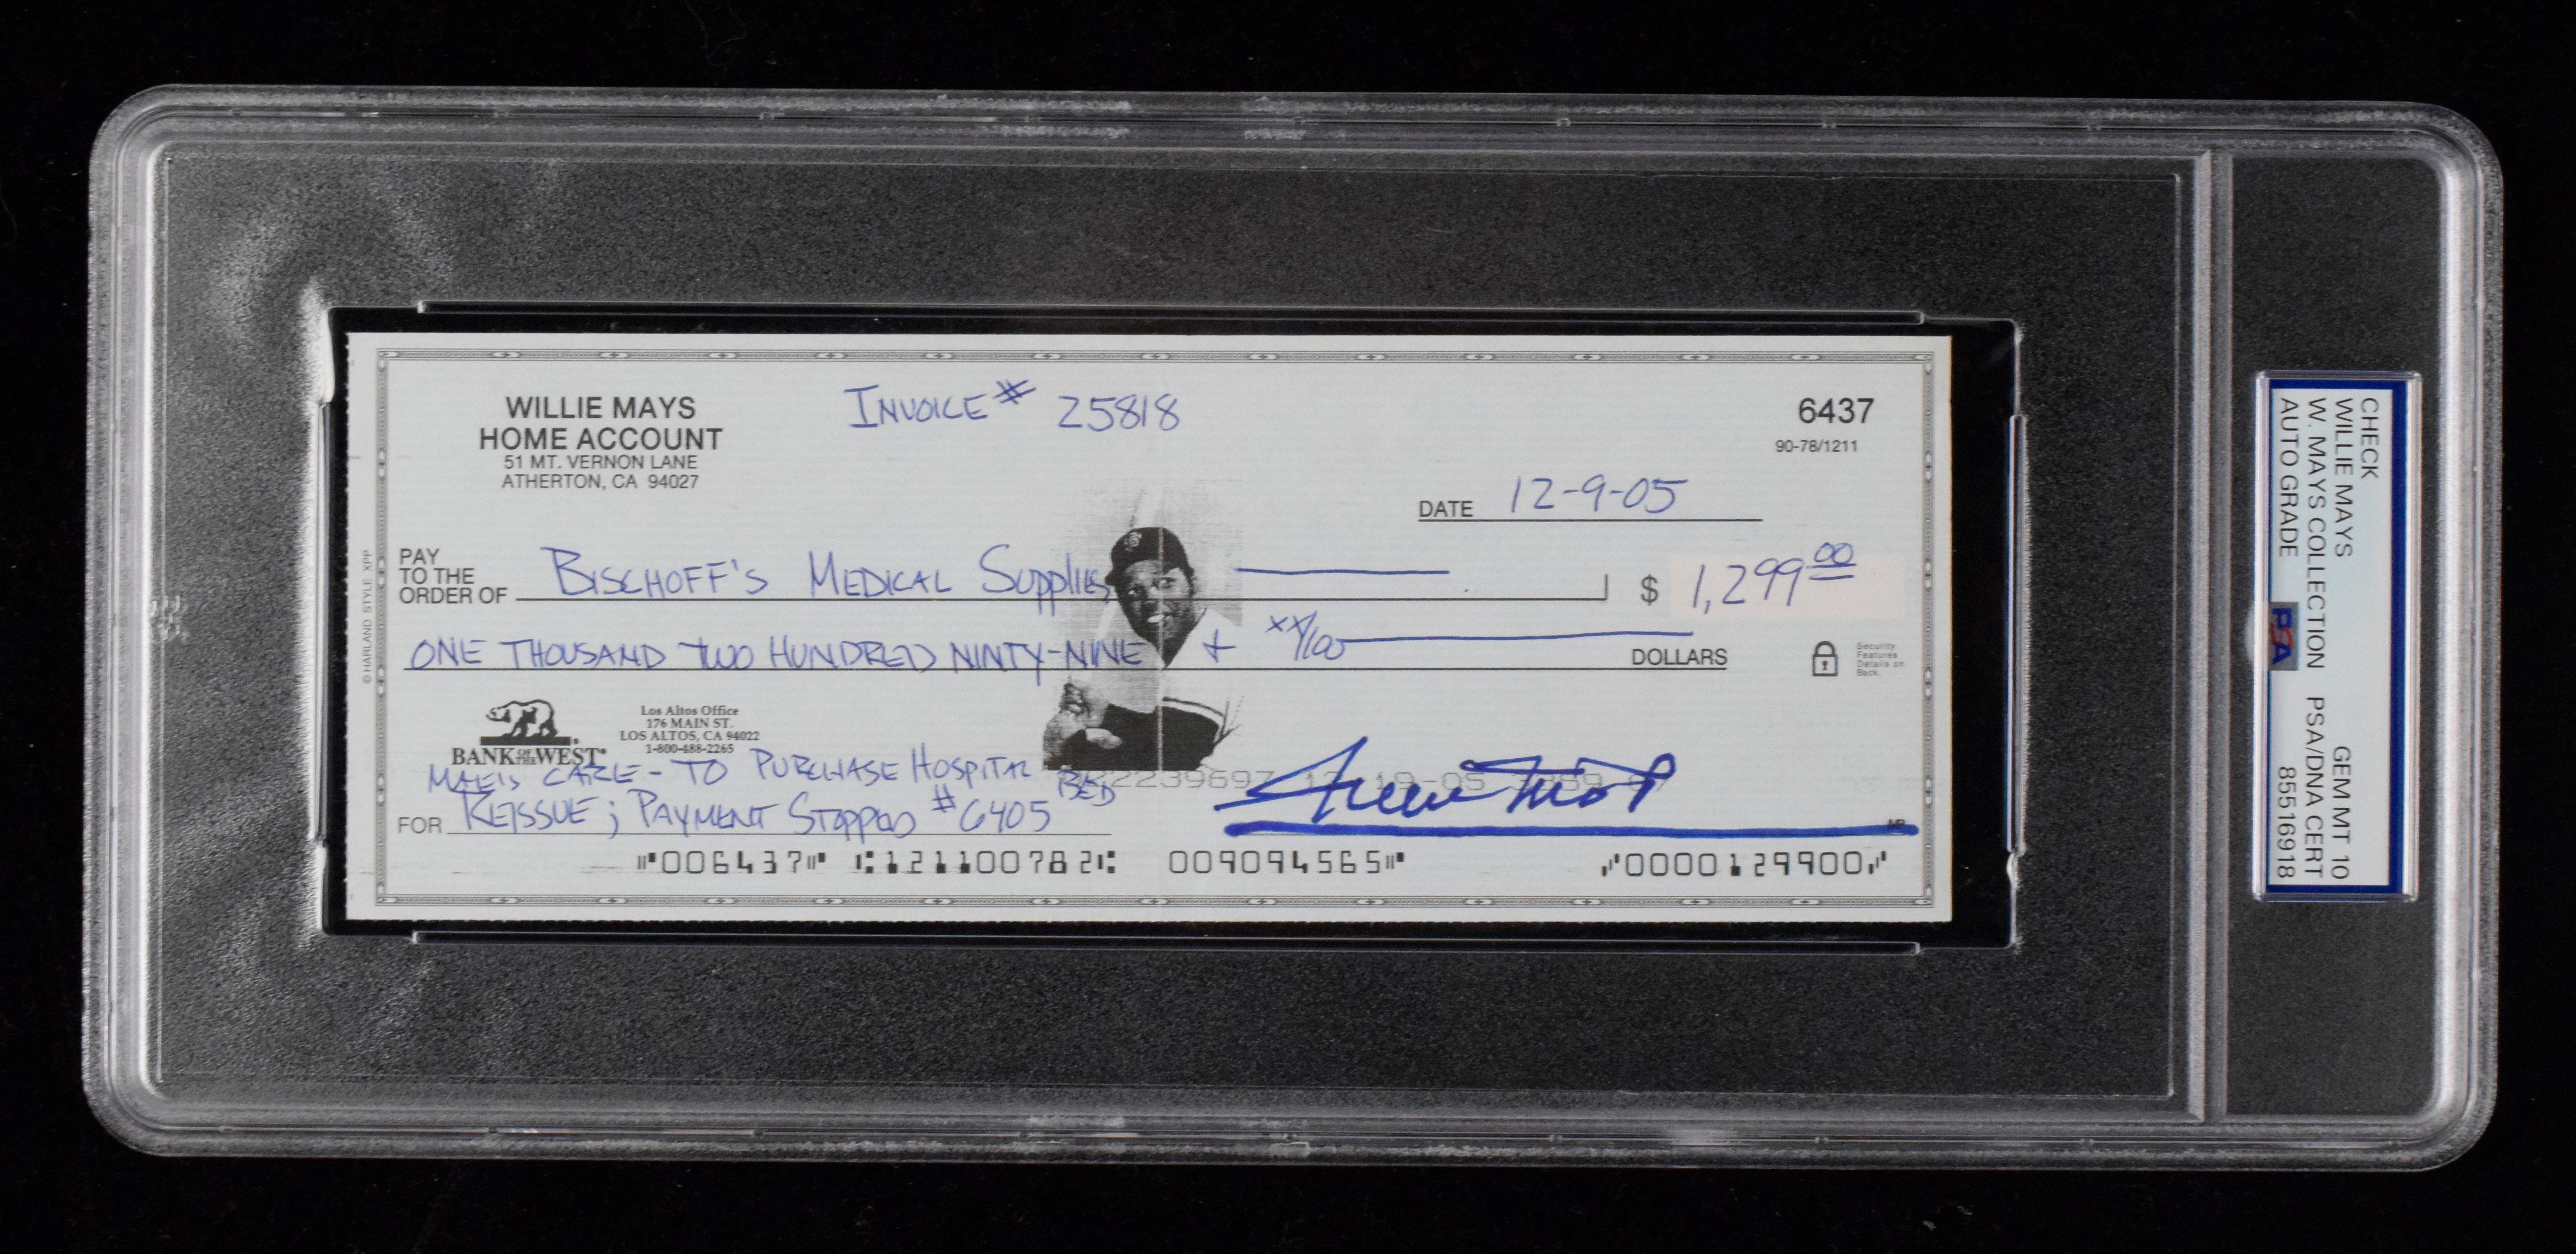 WILLIE MAYS
HOME ACCOUNT
51 MT. VERNON LANE
ATHERTON, CA 94027
INVOICE # 25818
6437
90-78/1211
DATE 12-9-05
PAY
TO THE
ORDER OF BISCHOFF'S MEDICAL SUPPLIES $ 1,299 00
ONE THOUSAND TWO HUNDRED NINTY-NINE + XX/100 DOLLARS
Security
Features
Details on
Back.
BANK OF THE WEST
Los Altos Office
176 MAIN ST.
LOS ALTOS, CA 94022
1-800-488-2265
MAE'S CARE - TO PURCHASE HOSPITAL BED
FOR REISSUE; PAYMENT STOPPED #6405
Willie Mays
MP
⑈006437⑈ ⑆121100782⑆ 009094565⑈ ⑇0000129900⑇
© HARLAND STYLE XPP
CHECK
WILLIE MAYS GEM MT 10
W. MAYS COLLECTION PSA/DNA CERT
AUTO GRADE PSA 85516918